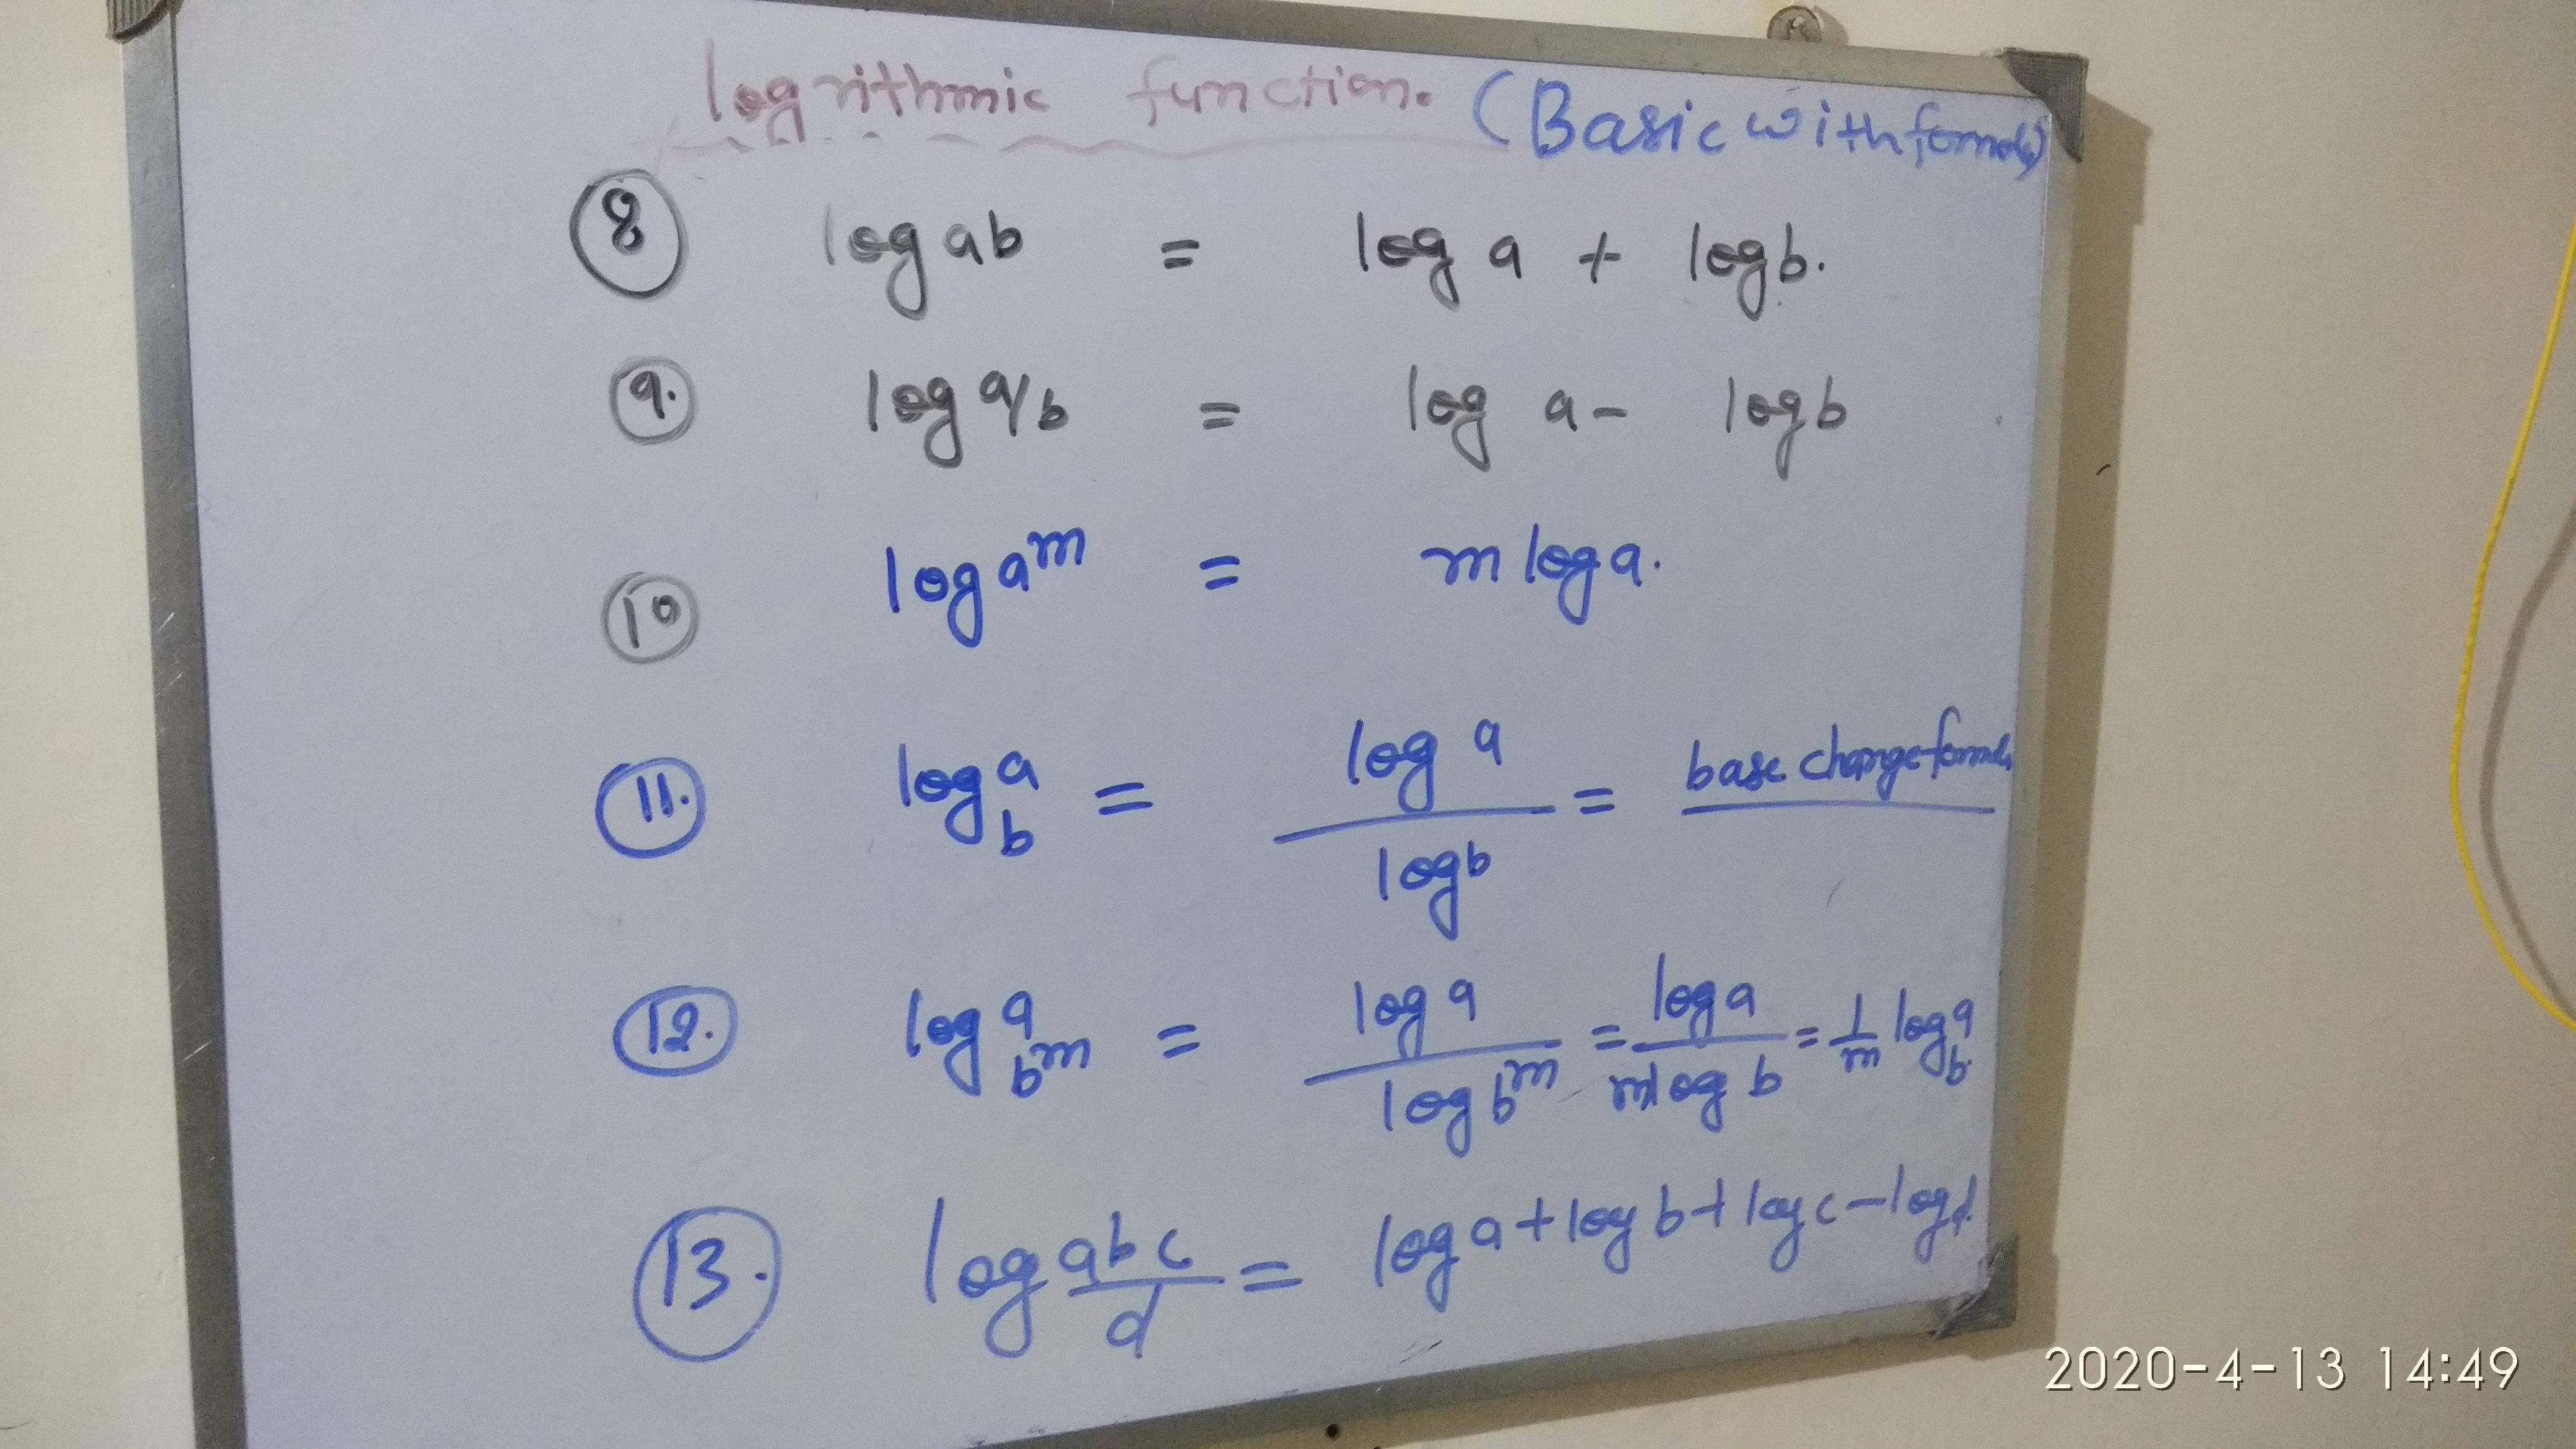 logrithmic function. (Basic with formula)
8 log ab = log a + log b.
9. log a/b = log a - log b
10 log a^m = m log a.
11. log_b a = log a / log b = base change formula
12. log_{b^m} a = log a / log b^m = log a / m log b = 1/m log_b a.
13. log abc/d = log a + log b + log c - log d.
2020-4-13 14:49